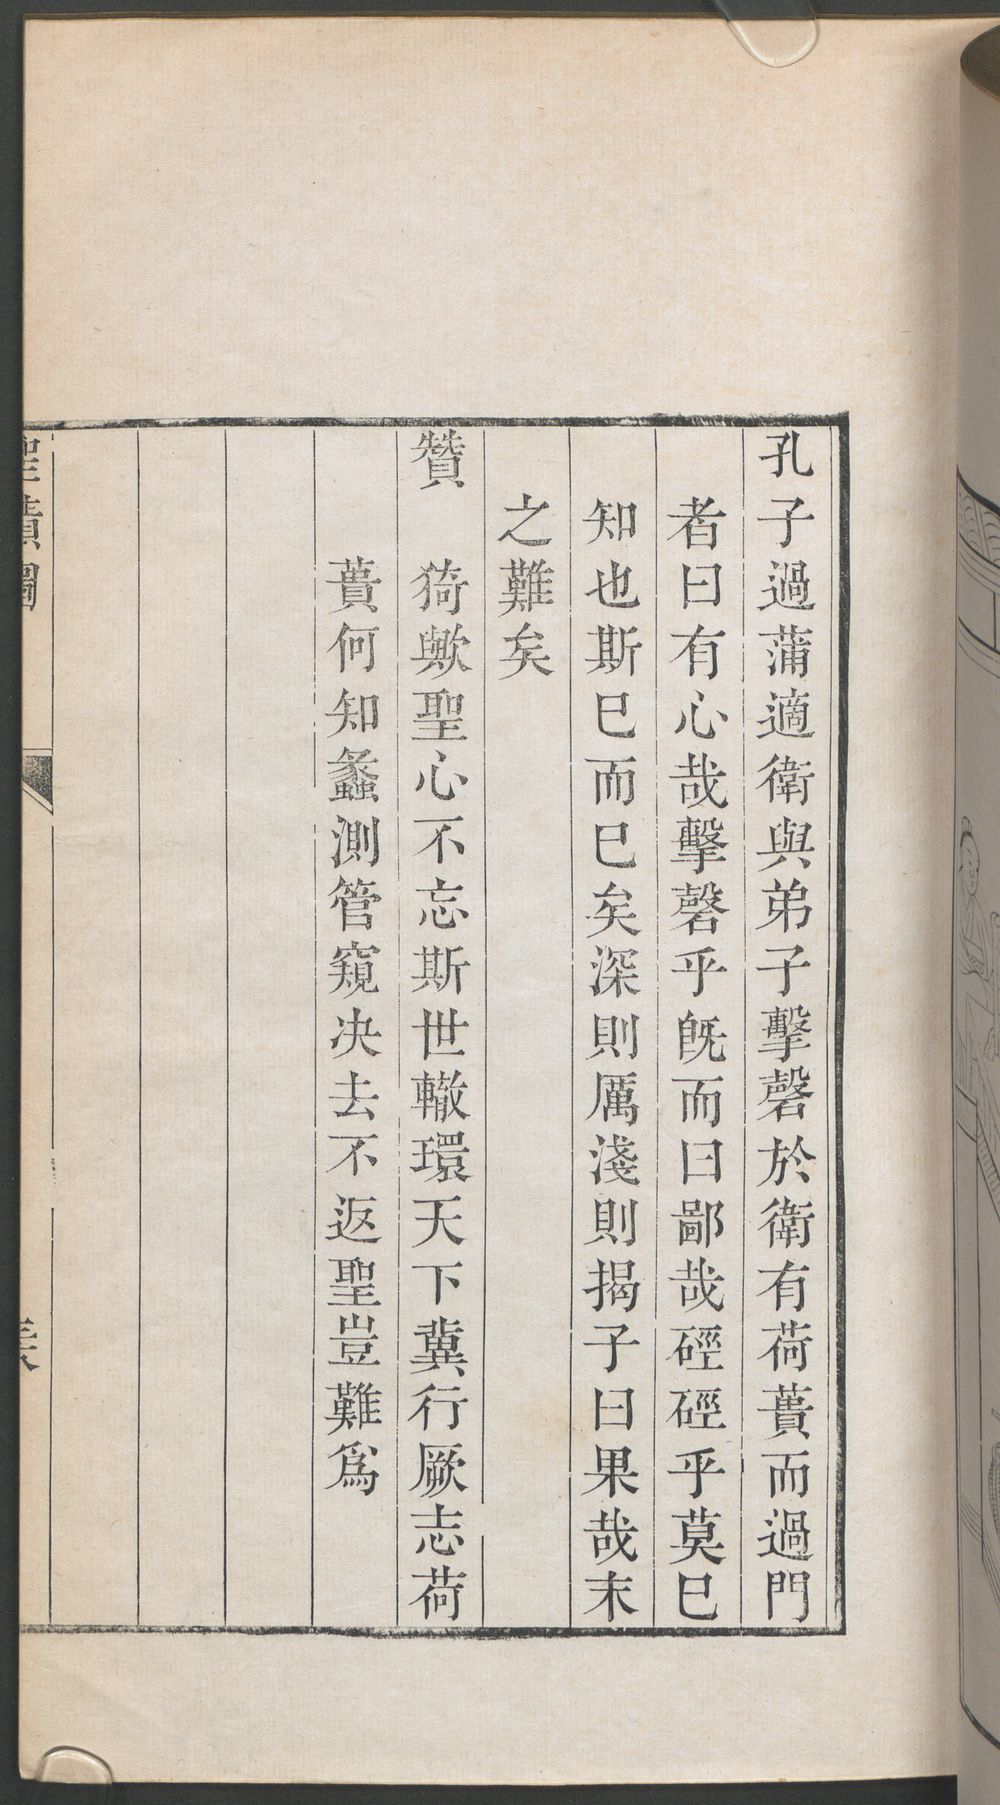 孔子過蒲適衛與弟子擊磬於衛有荷蕢而過門
者曰有心哉擊磬乎旣而曰鄙哉硜硜乎莫巳
知也斯巳而巳矣深則厲淺則揭子曰果哉末
之難矣
贊　猗歟聖心不忘斯世轍環天下冀行厥志荷
蕢何知蠡測管窺决去不返聖豈難爲
聖蹟圖